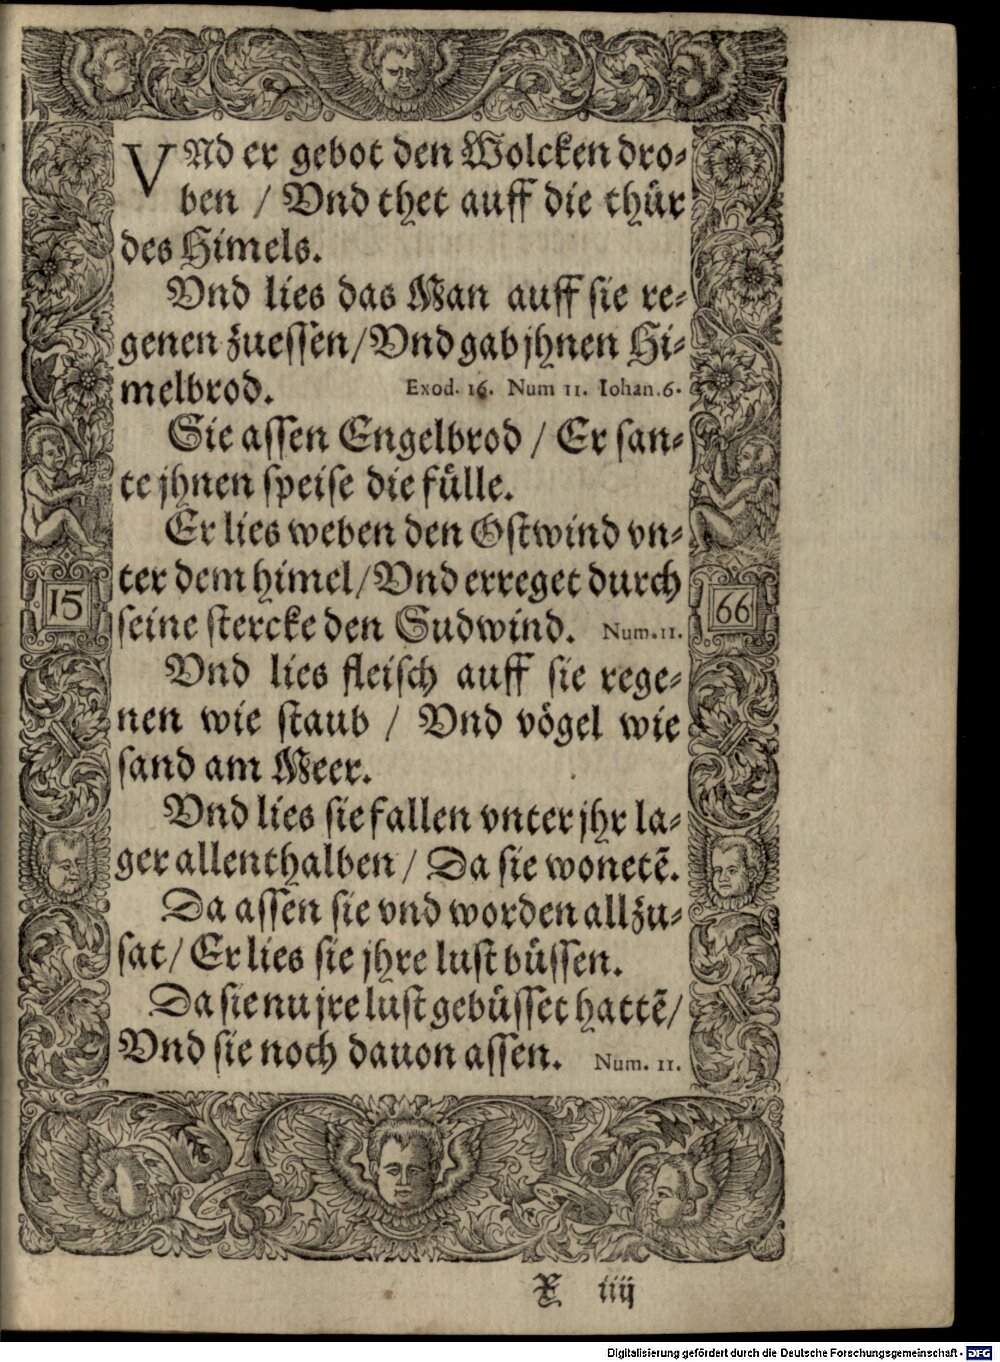 VNd er gebot den Wolcken dro⸗
ben / Vnd thet auff die thür
des Himels.
Vnd lies das Man auff sie re⸗
genen zuessen/Vnd gab jhnen Hi⸗
melbrod. Exod. 16. Num 11. Iohan.6.
Sie assen Engelbrod / Er san⸗
te jhnen speise die fülle.
Er lies weben den Ostwind vn⸗
ter dem himel/Vnd erreget durch
15 66
seine stercke den Sudwind. Num.11.
Vnd lies fleisch auff sie rege⸗
nen wie staub / Vnd vögel wie
sand am Meer.
Vnd lies sie fallen vnter jhr la⸗
ger allenthalben / Da sie wonetẽ.
Da assen sie vnd worden allzu⸗
sat/ Er lies sie jhre lust büssen.
Da sie nu jre lust gebüsset hattẽ/
Vnd sie noch dauon assen. Num. 11.
X iiij
Digitalisierung gefördert durch die Deutsche Forschungsgemeinschaft - DFG